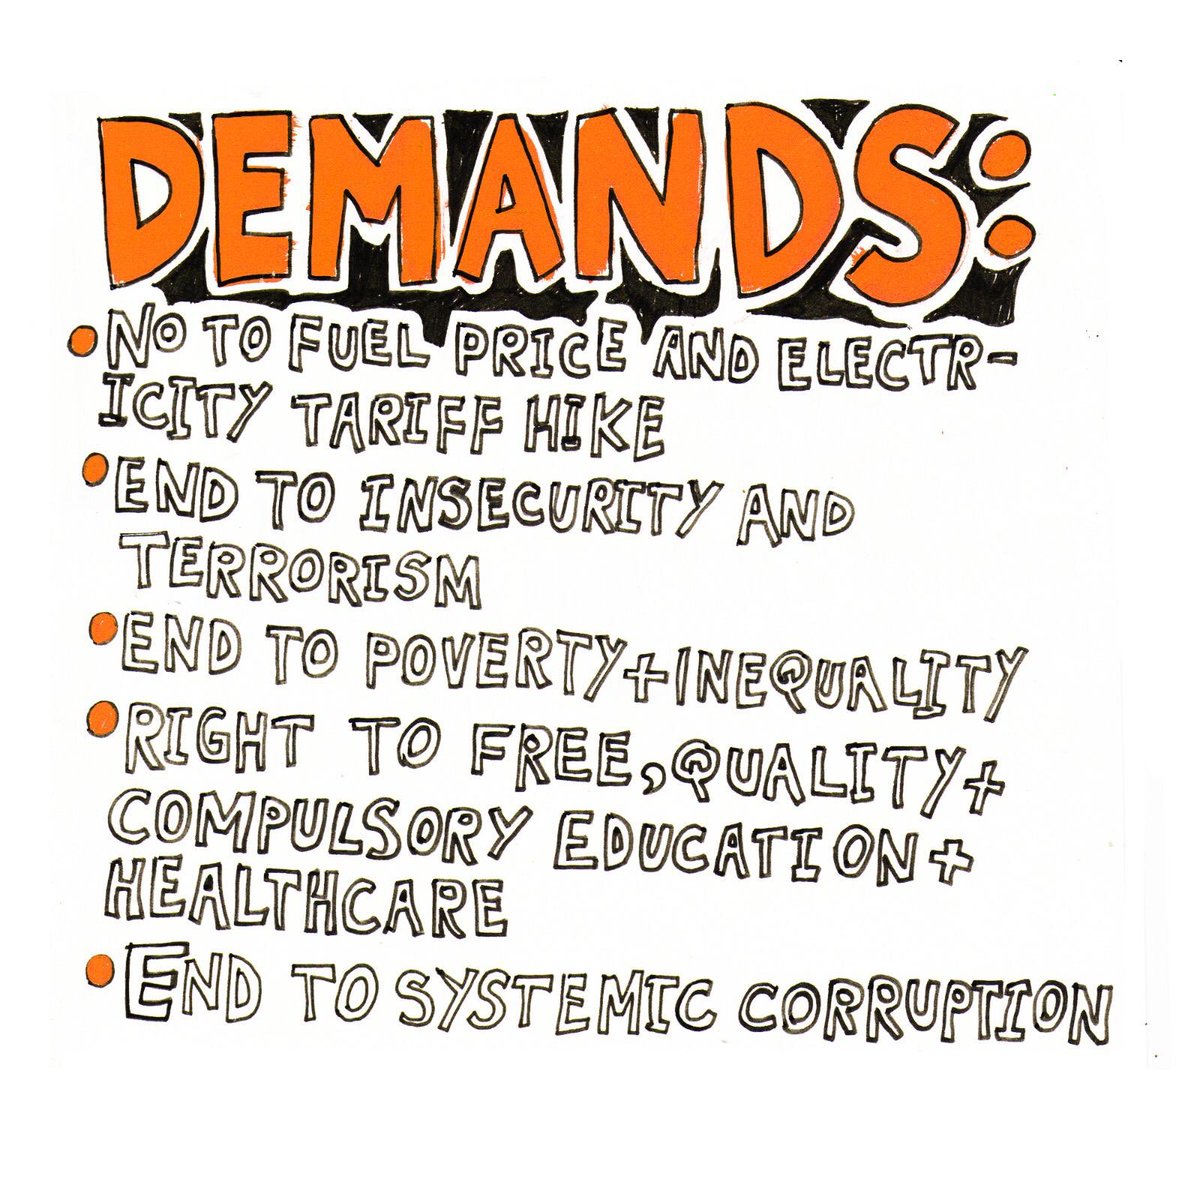 DEMANDS:
• NO TO FUEL PRICE AND ELECTR-
ICITY TARIFF HIKE
• END TO INSECURITY AND
TERRORISM
• END TO POVERTY + INEQUALITY
• RIGHT TO FREE, QUALITY +
COMPULSORY EDUCATION +
HEALTHCARE
• END TO SYSTEMIC CORRUPTION